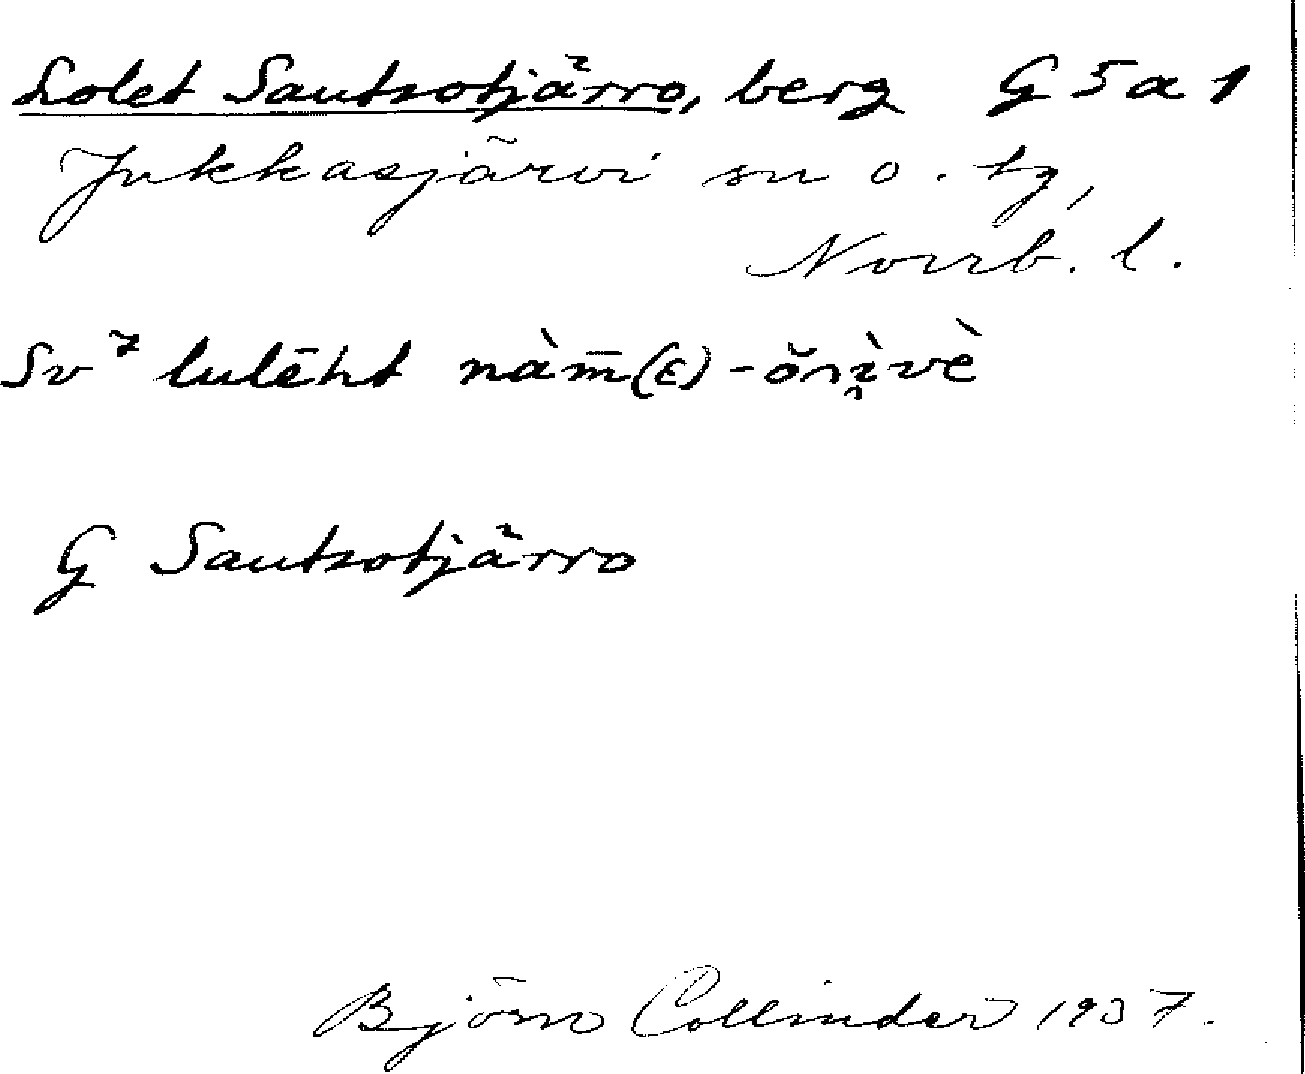 Lolet Sautsotjårro, berg G 5 a 1
Jukkasjärvi sn o. tg,
Norrb. l.
Sv⁷ lulēht nàm̄(ε)-
G Sautsotjårro
Björn Collinder 1937.